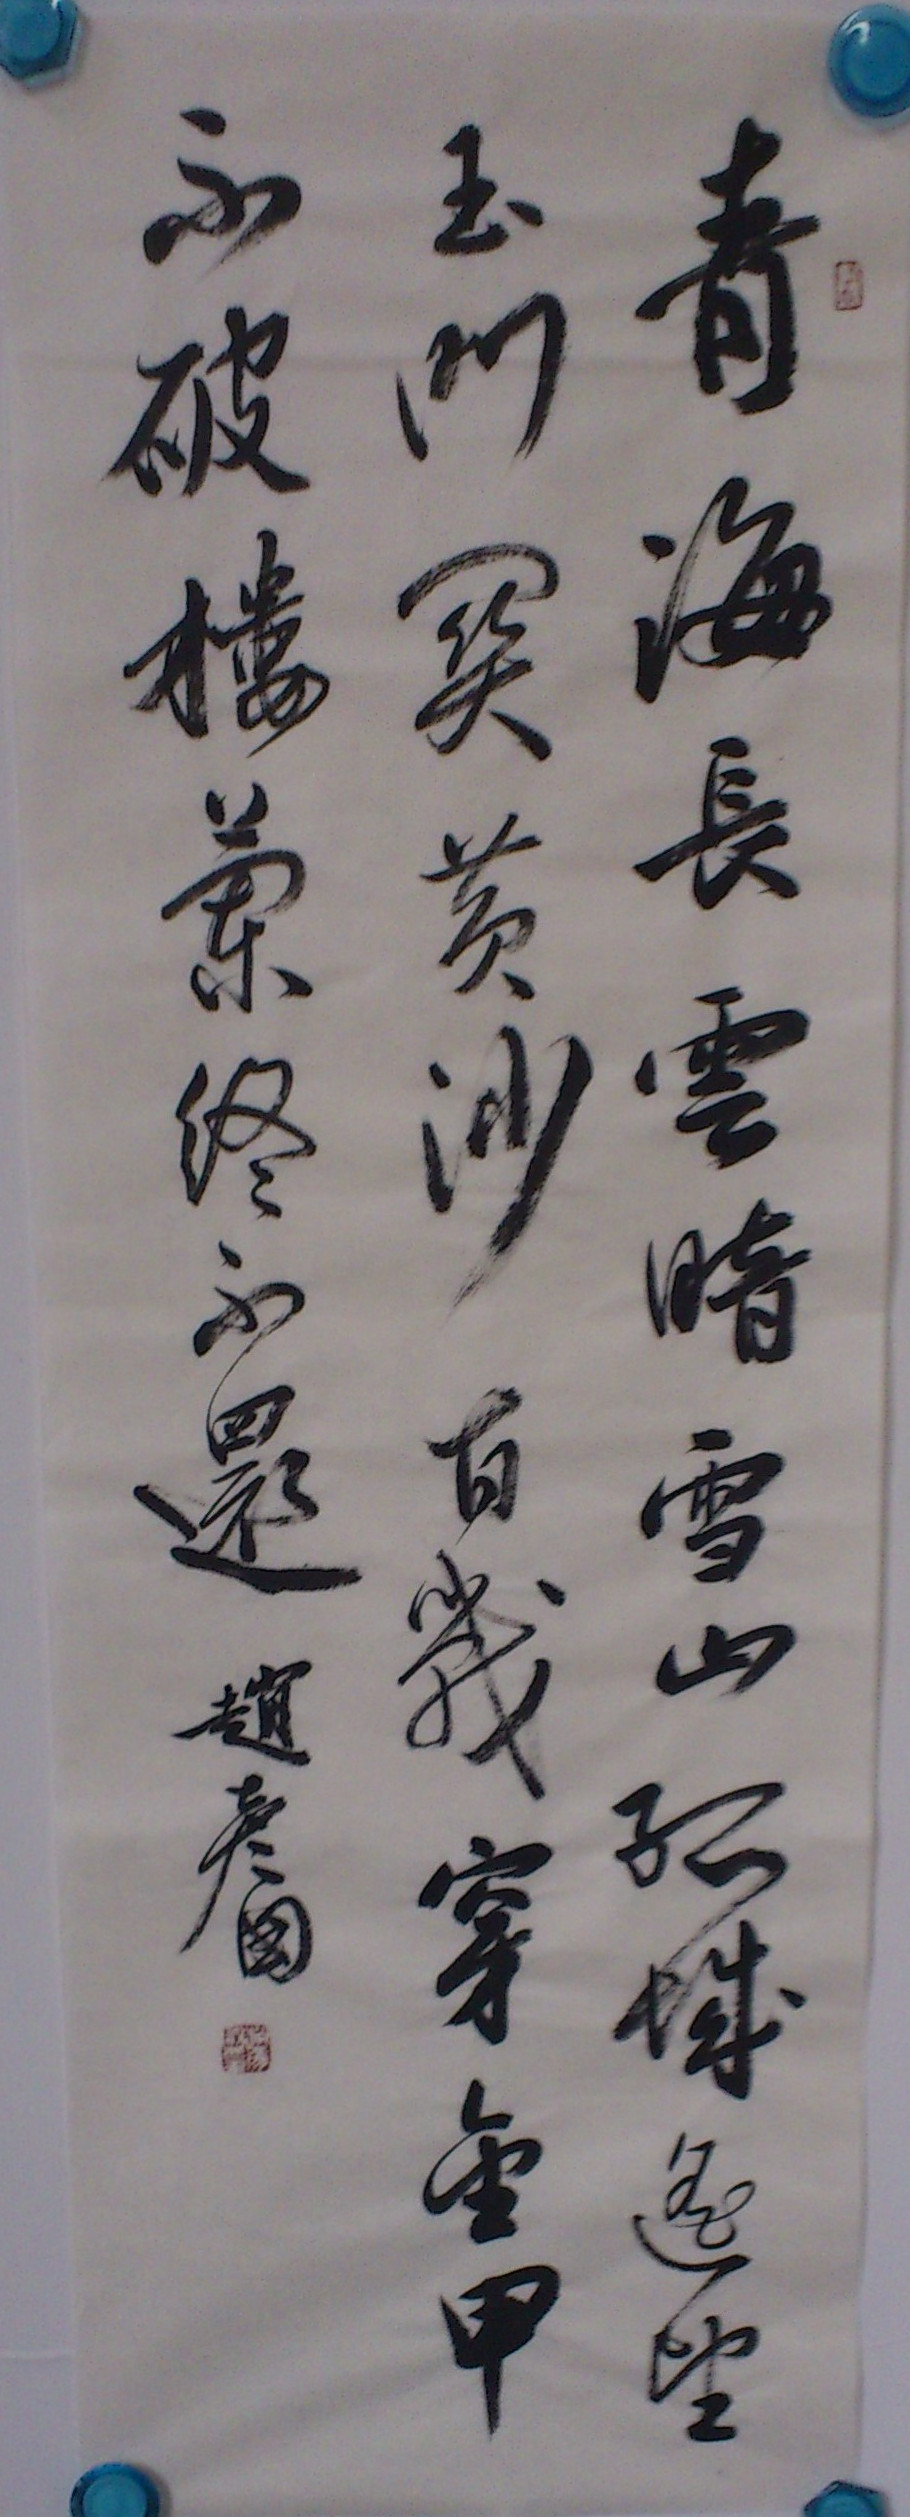 青海長雲暗雪山孤城遙望
玉門関黄沙百戰穿金甲
不破樓蘭終不還 趙彥國